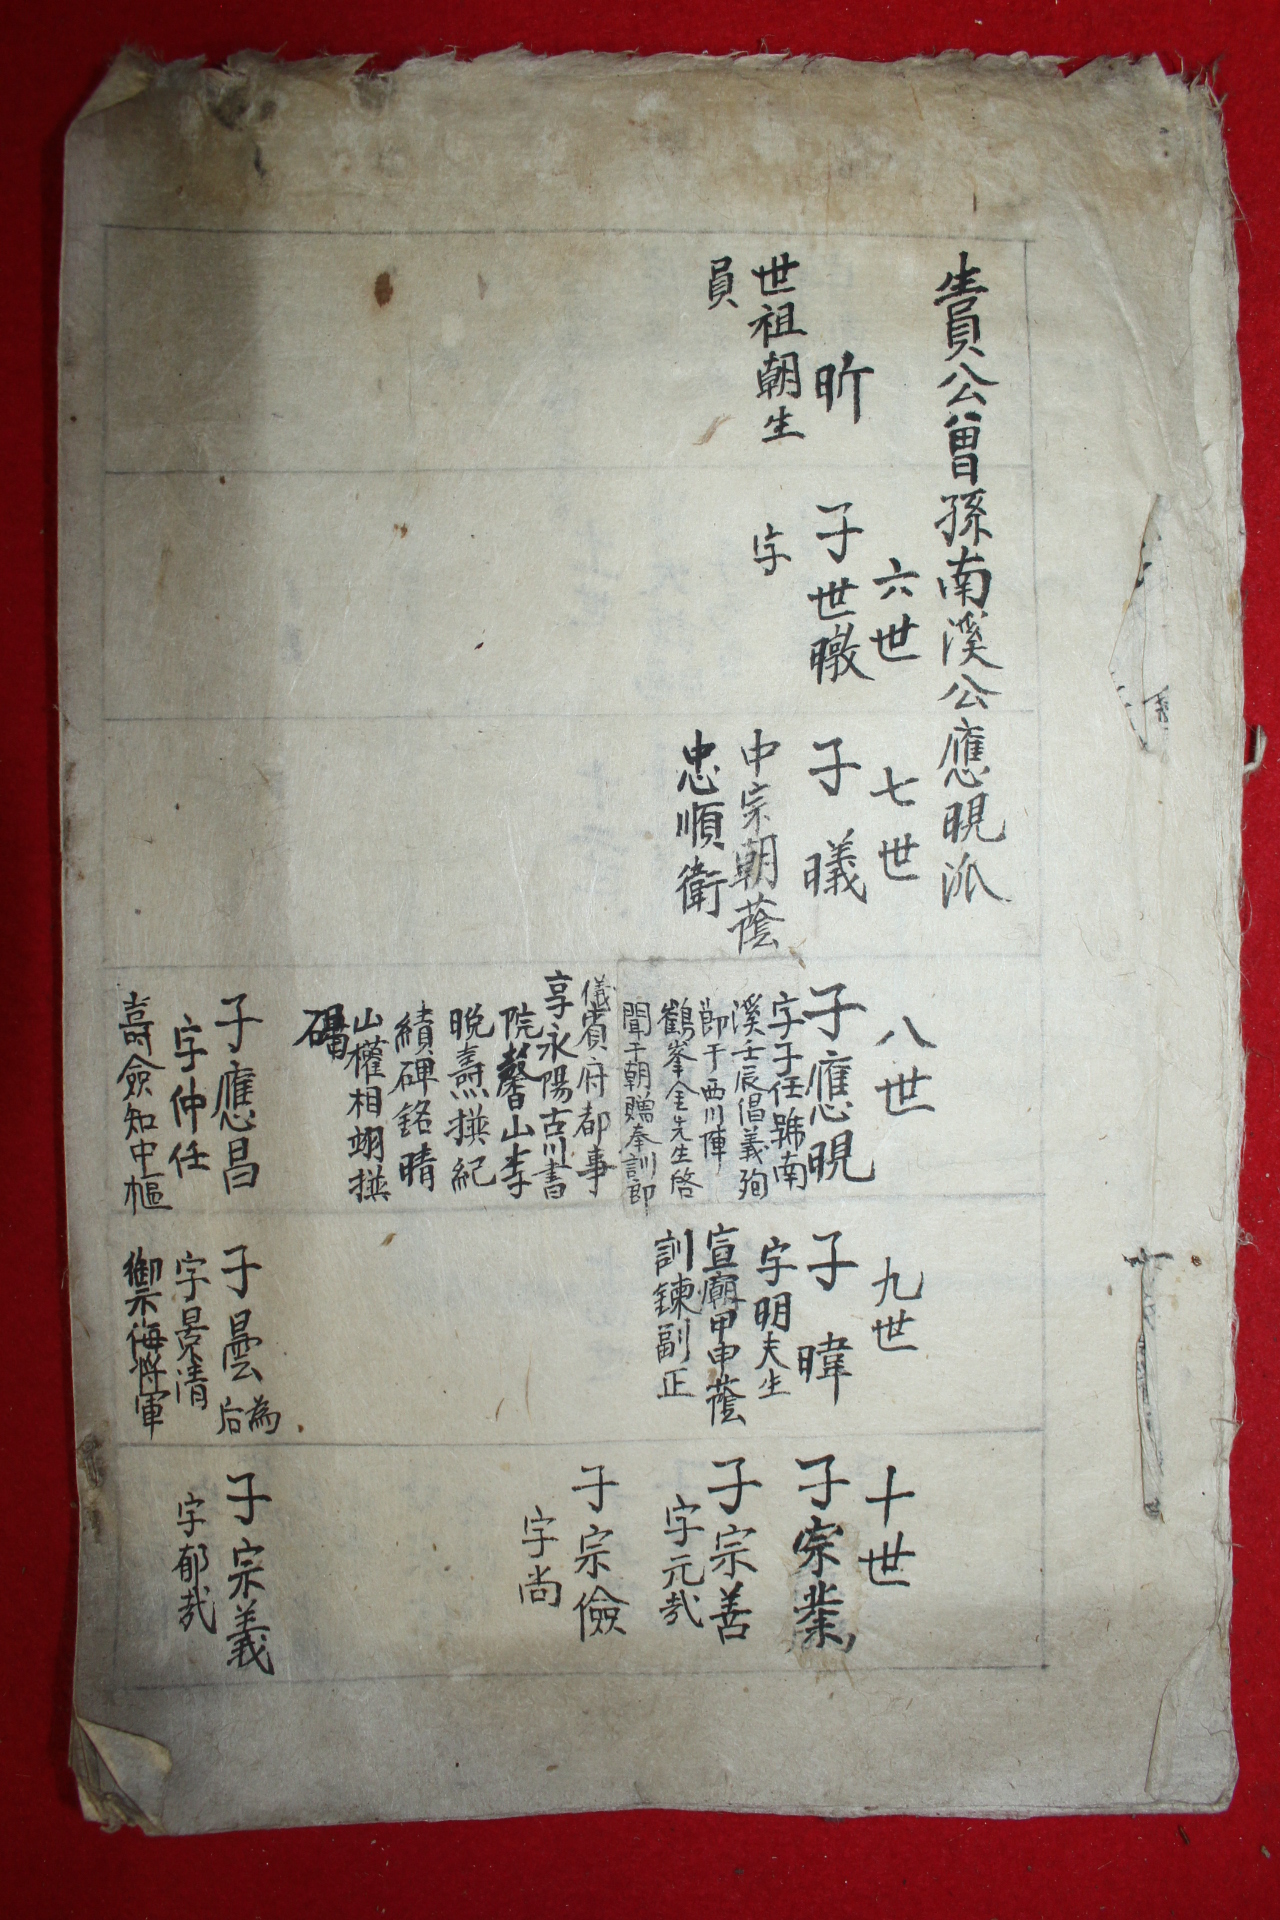 生員公曾孫南溪公應晛派
昕
世祖朝生
員
六世
子世暾
字
七世
子曦
中宗朝蔭
忠順衛
八世
子應晛
字子任號南
溪壬辰倡義殉
節于西川陣
鶴峯金先生啓
聞于朝贈奉訓郎
儀賓府都事
享永陽古川書
院馨山李
晩燾撰紀
績碑銘晴
山權相翊撰
碣
子應昌
字仲任
壽僉知中樞
九世
子暐
字明夫生
宣廟甲申蔭
訓鍊副正
子曇為后
字景清
禦侮將軍
十世
子宗業
子宗善
字元哉
子宗儉
字尚
子宗義
字郁哉